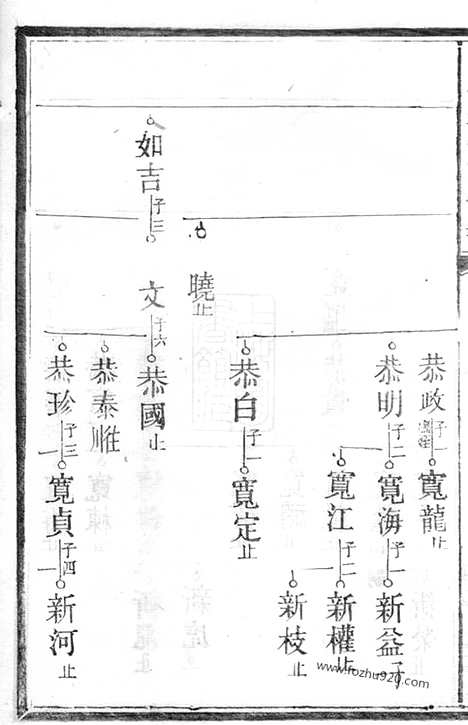 恭政子一寬龍止
恭明子二寬海子一新益子
寬江子二新權止
新枝止
恭白子一寬定止
曉止
如吉子三文子六恭國止
恭泰
恭珍子三寬貞子四新河止
www.fozhu920.com